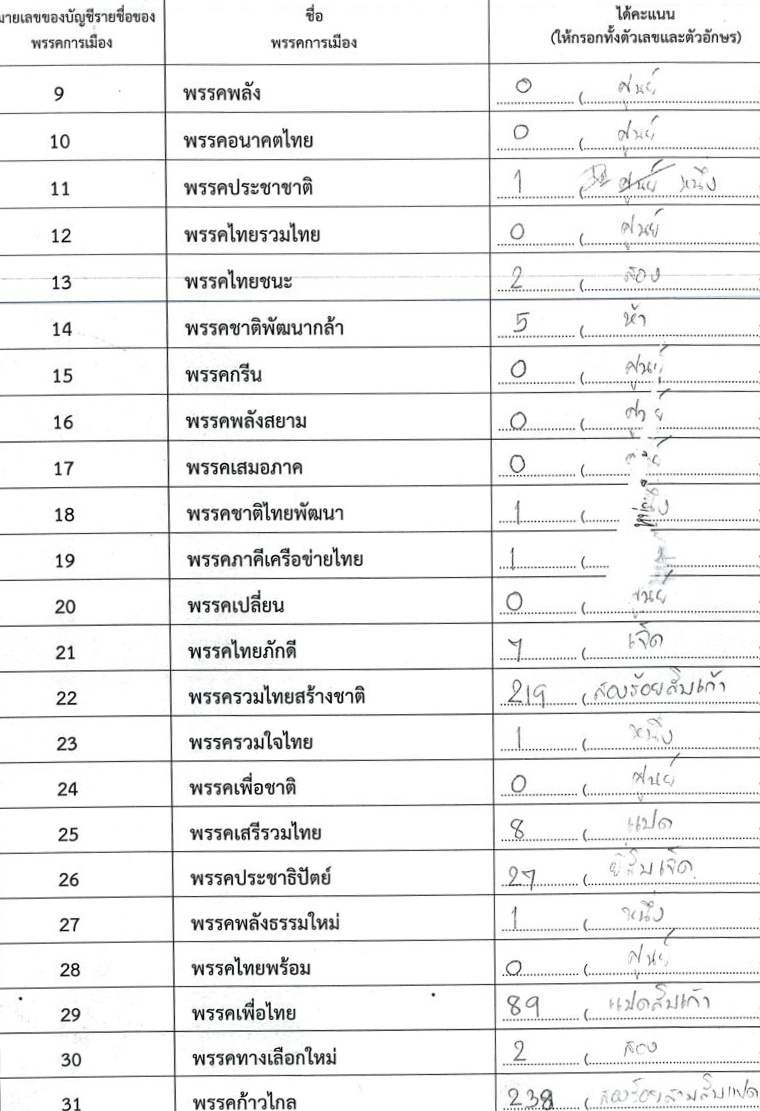 มายเลขของบัญชีรายชื่อของ ชื่อ ได้คะแนน
พรรคการเมือง พรรคการเมือง (ให้กรอกทั้งตัวเลขและตัวอักษร)
9 พรรคพลัง 0 ( ศูนย์
10 พรรคอนาคตไทย 0 ( ศูนย์
11 พรรคประชาชาติ 1 ศูนย์ หนึ่ง
12 พรรคไทยรวมไทย 0 ( ศูนย์
13 พรรคไทยชนะ 2 ( สอง
14 พรรคชาติพัฒนากล้า 5 ( ห้า
15 พรรคกรีน 0 ( ศูนย์
16 พรรคพลังสยาม 0 ( ศูนย์
17 พรรคเสมอภาค 0 (
18 พรรคชาติไทยพัฒนา 1 (
19 พรรคภาคีเครือข่ายไทย 1 (
20 พรรคเปลี่ยน 0 ( ศูนย์
21 พรรคไทยภักดี 7 ( เจ็ด
22 พรรครวมไทยสร้างชาติ 219 ( สองร้อยสิบเก้า
23 พรรครวมใจไทย 1 ( หนึ่ง
24 พรรคเพื่อชาติ 0 ( ศูนย์
25 พรรคเสรีรวมไทย 8 ( แปด
26 พรรคประชาธิปัตย์ 27 ( ยี่สิบเจ็ด
27 พรรคพลังธรรมใหม่ 1 ( หนึ่ง
28 พรรคไทยพร้อม 0 ( ศูนย์
29 พรรคเพื่อไทย 89 ( แปดสิบเก้า
30 พรรคทางเลือกใหม่ 2 ( สอง
31 พรรคก้าวไกล 238 ( สองร้อยสามสิบแปด